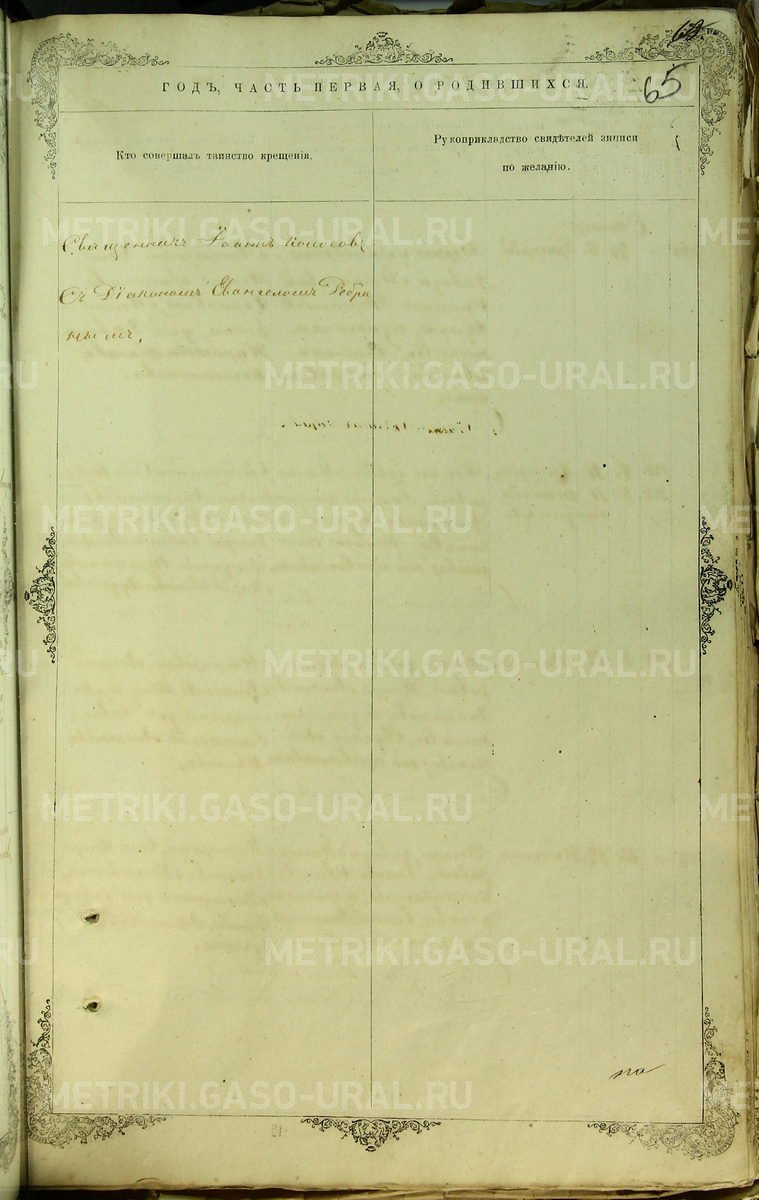 65
ГОДЪ, ЧАСТЬ ПЕРВАЯ, О РОДИВШИХСЯ.
Кто совершалъ таинство крещенія.
Рукоприкладство свидѣтелей записи
по желанію.
Священникъ Іоаннъ
Съ Діакономъ Евангеломъ Добра
нымъ.
по
METRIKI.GASO-URAL.RU